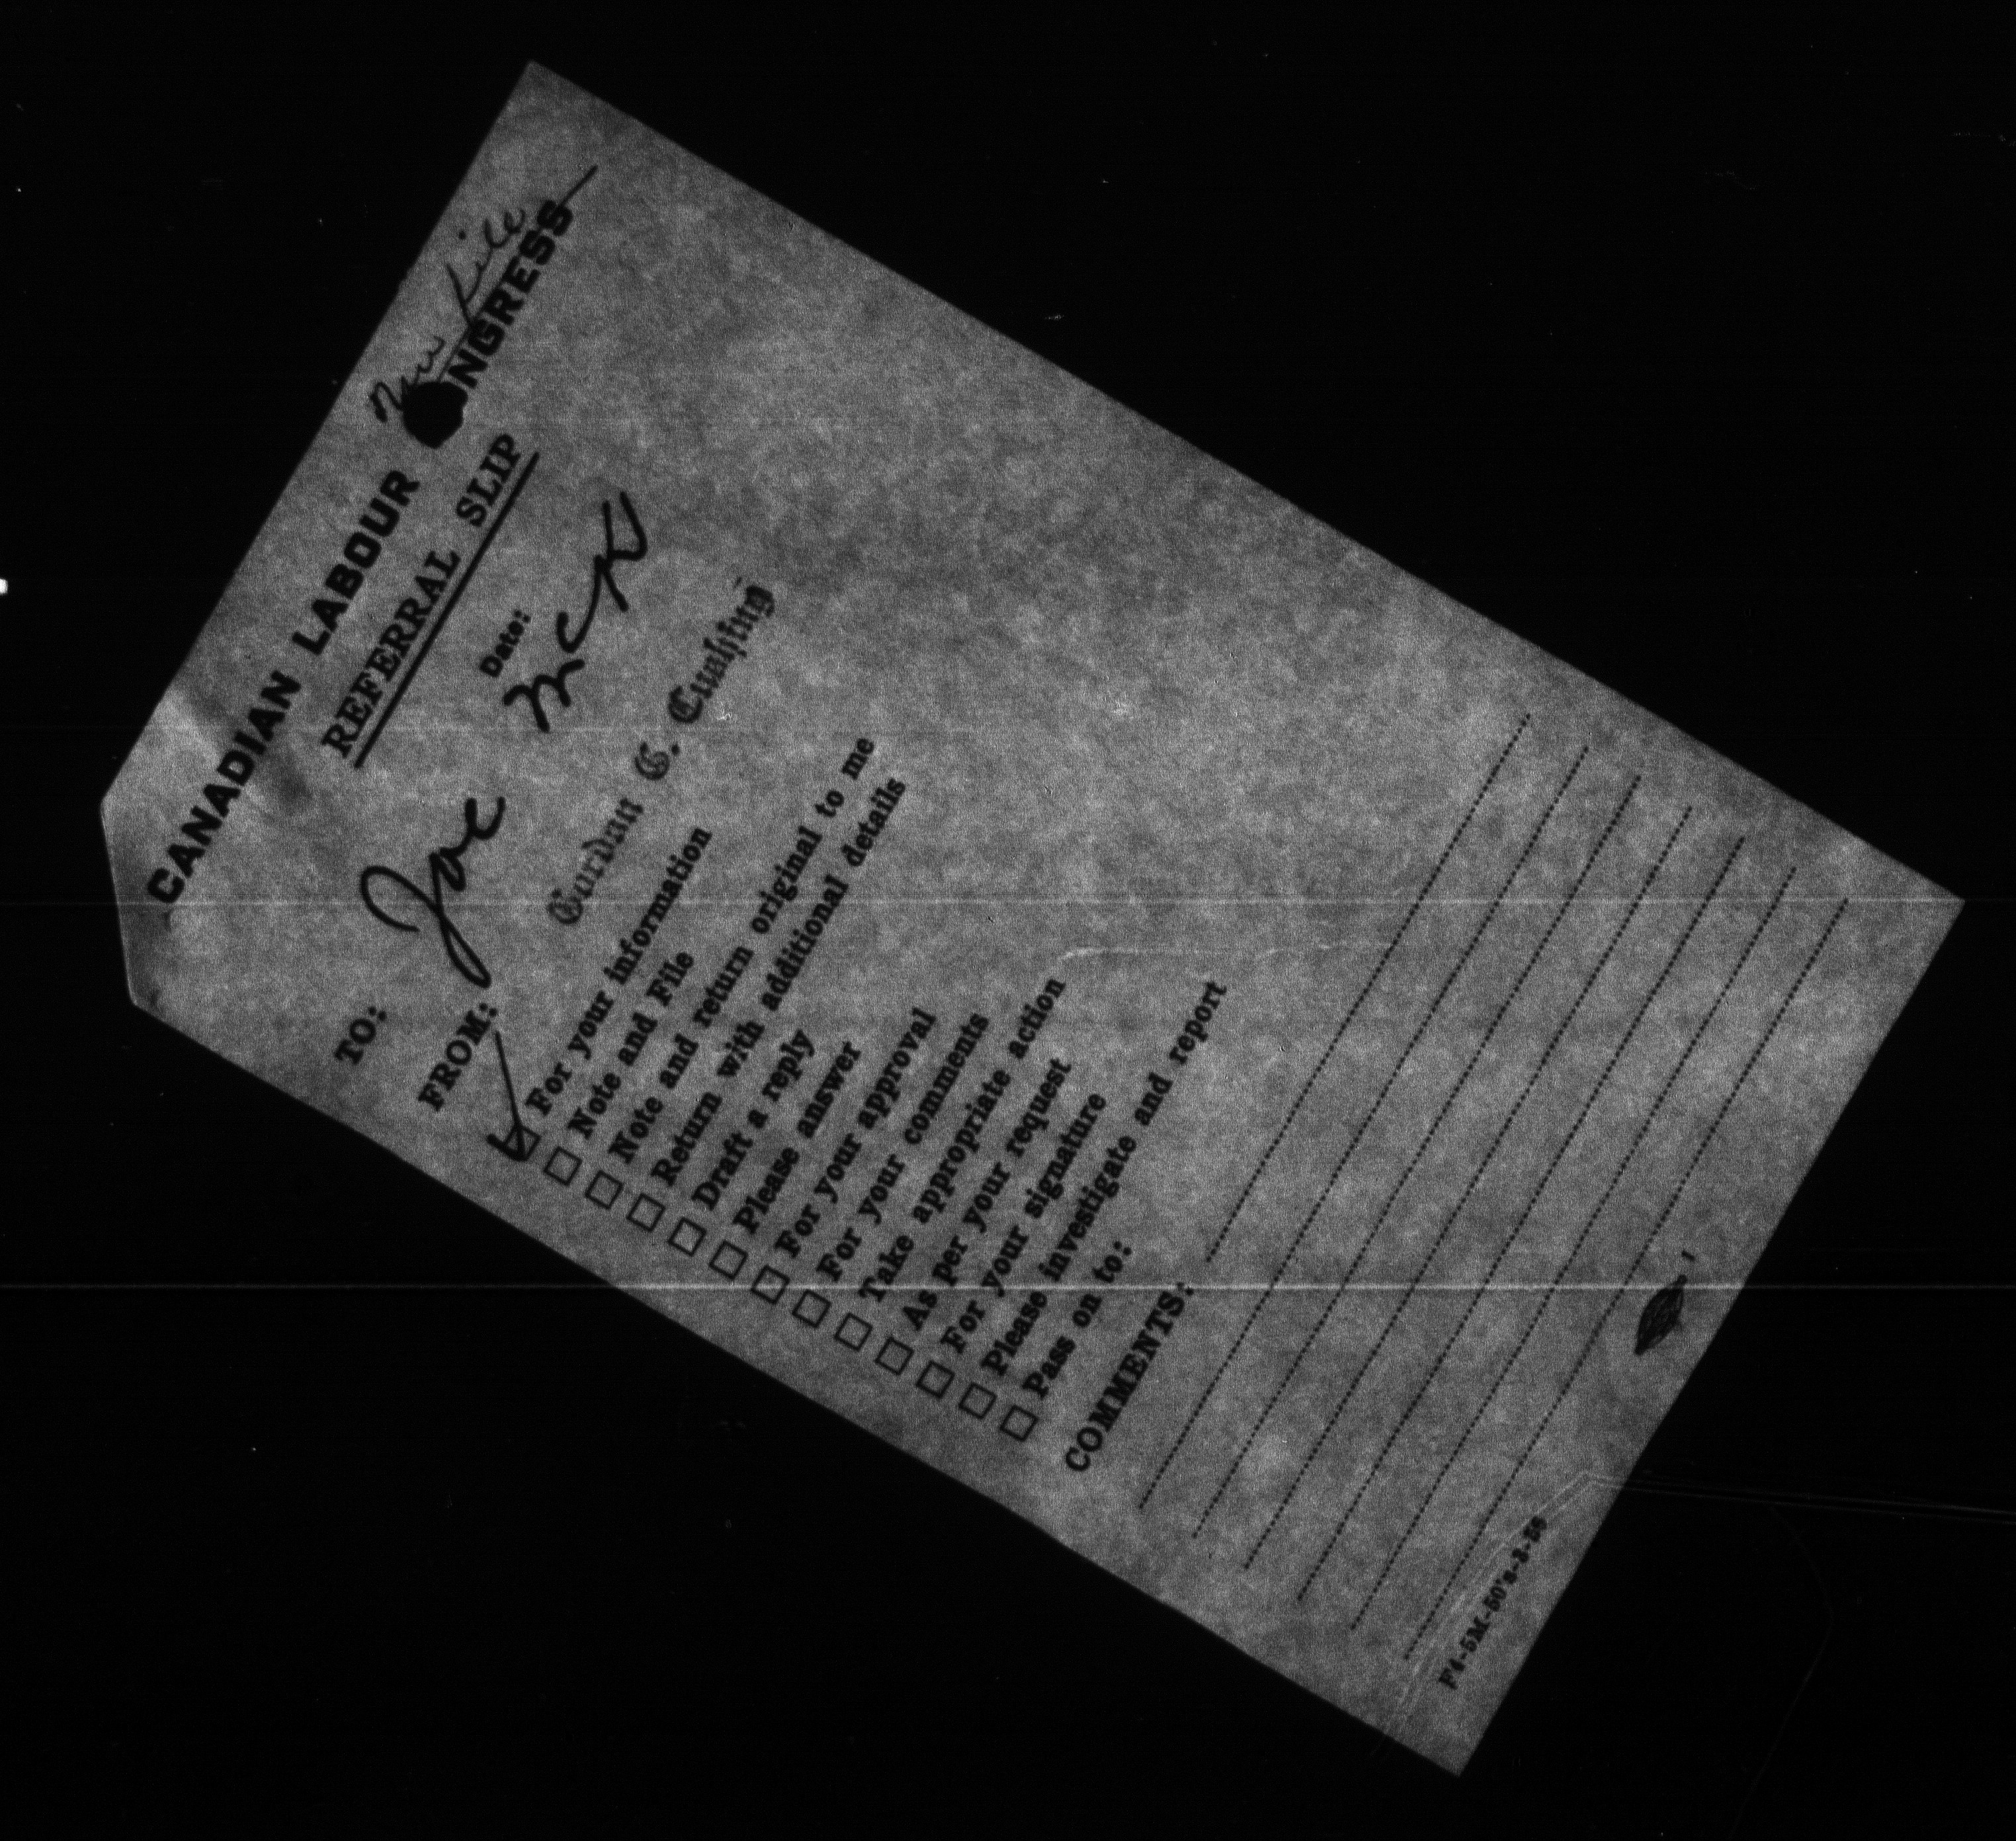 New file
CANADIAN LABOUR NGRESS
REFERRAL SLIP
Date:
TO: Joe McK
FROM: Gordon G. Cushing
For your information
Note and File
Note and return original to me
Return with additional details
Draft a reply
Please answer
For your approval
For your comments
Take appropriate action
As per your request
For your signature
Please investigate and report
Pass on to:
COMMENTS:
F4-5M-50's-3-56